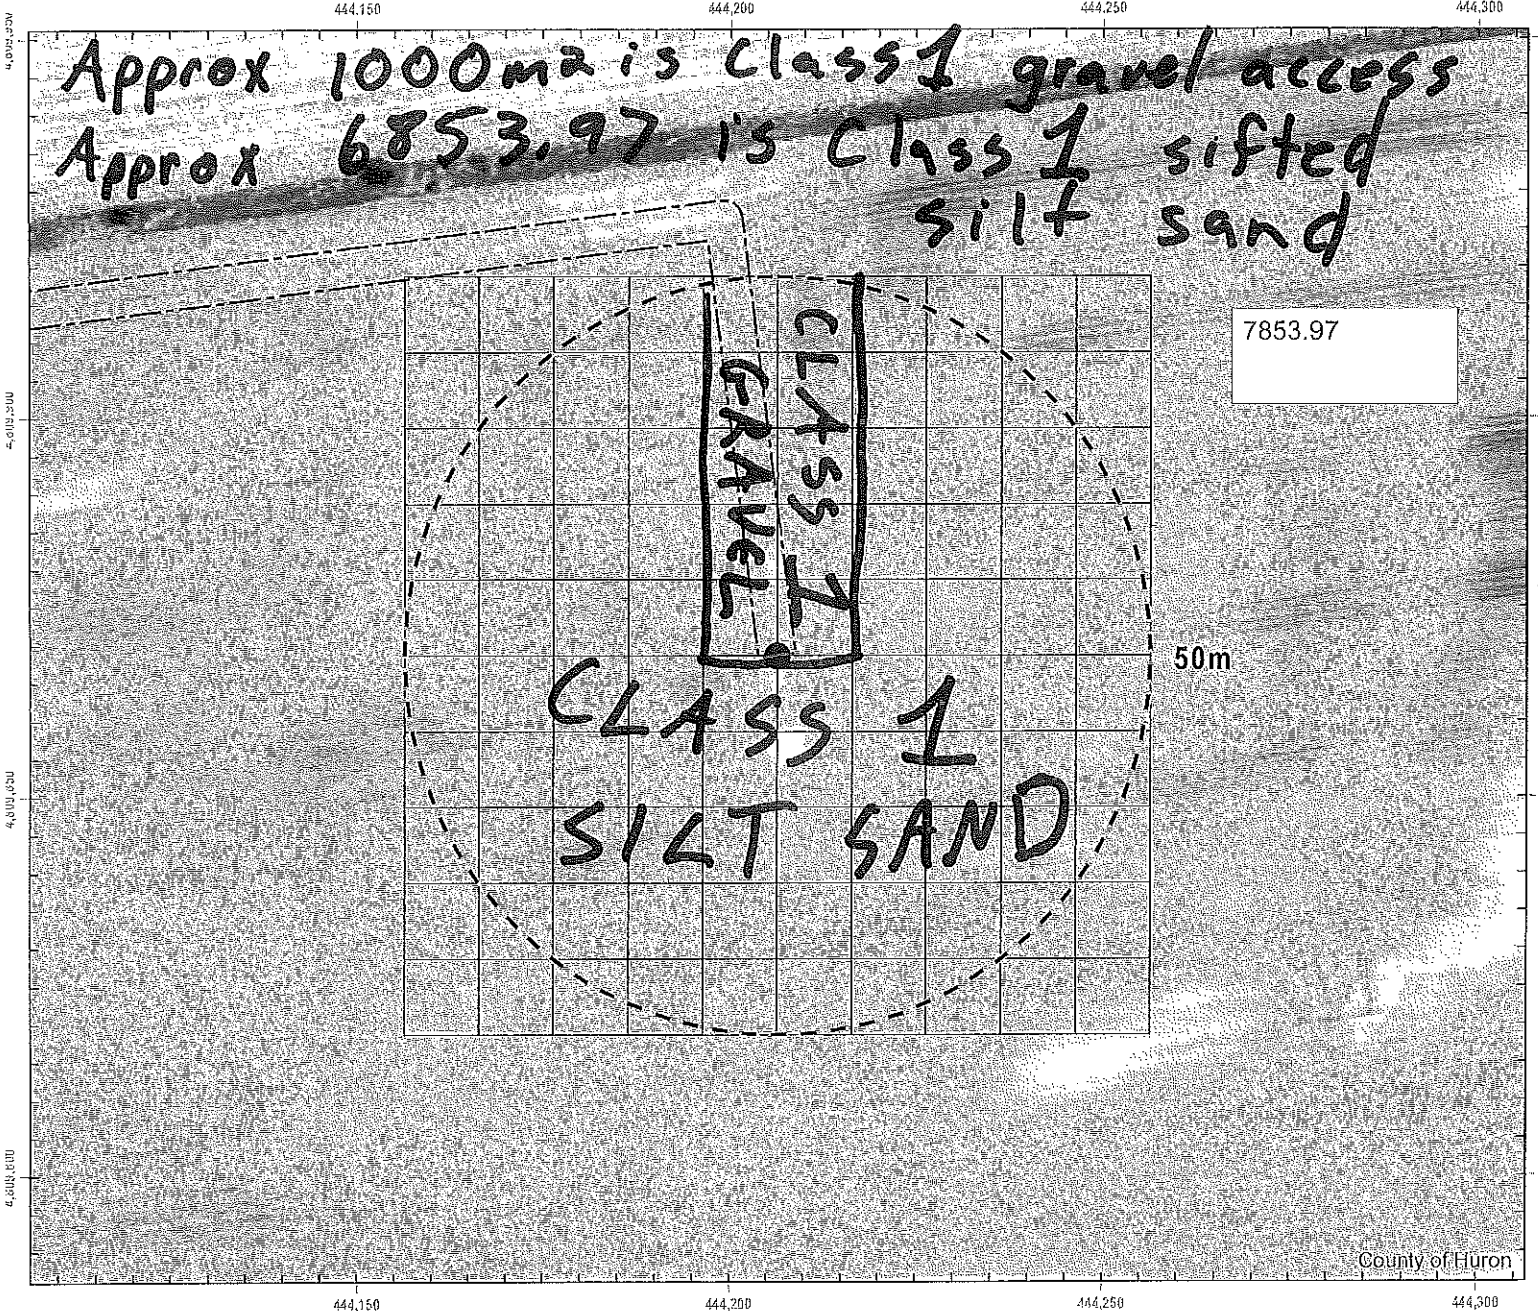 444,150 444,200 444,250 444,300
Approx 1000m2 is Class 1 gravel access
Approx 6853.97 is Class 1 sifted
silt sand
7853.97
CLASS 1
GRAVEL
50m
CLASS 1
SILT SAND
4,809,900
4,809,850
4,809,800
County of Huron
444,150 444,200 444,250 444,300